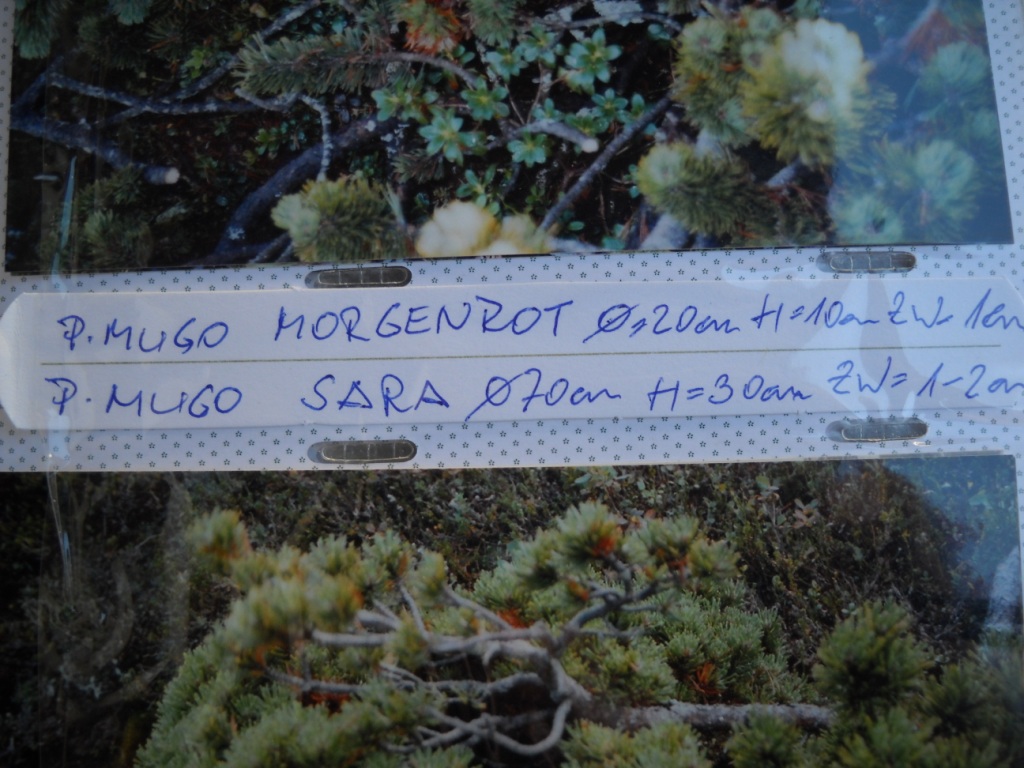 P. MUGO MORGENROT Ø=20cm H=10cm ZW=1cm
P. MUGO SARA Ø70cm H=30cm ZW=1-2cm